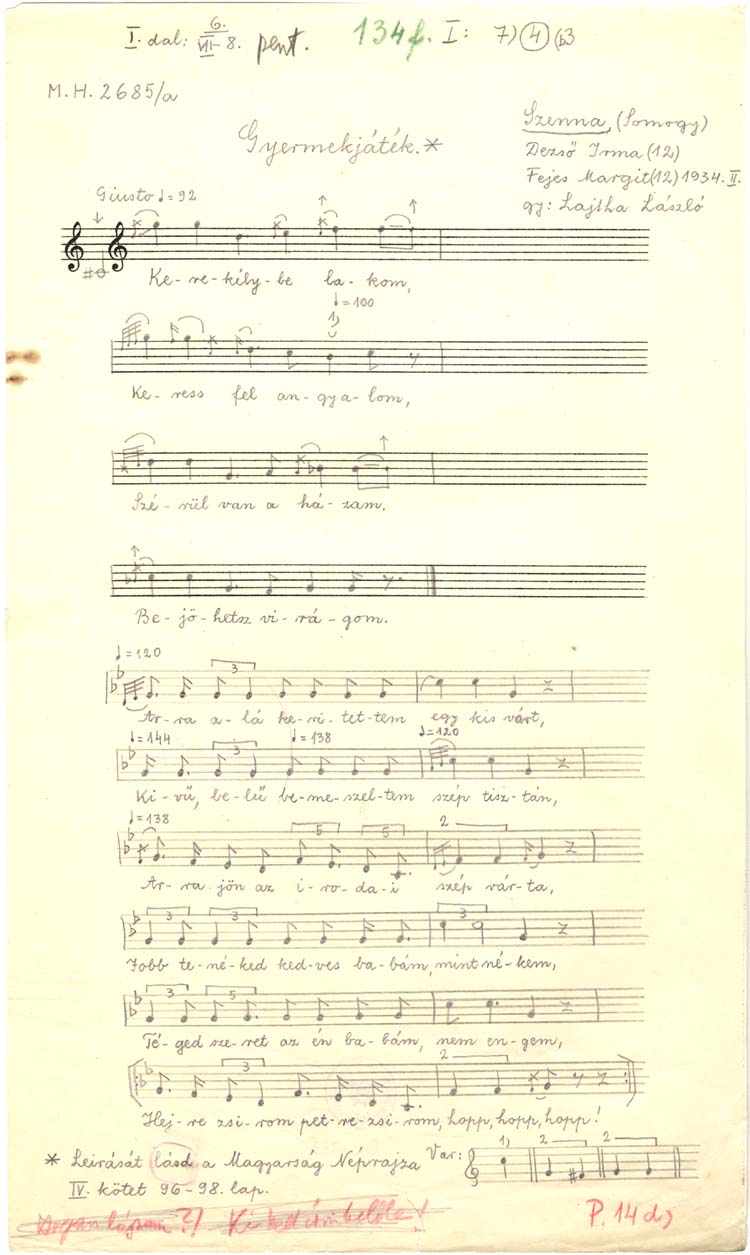 I. dal: 6. VII-8. pent. 134f. I: 7) 4 (b3
M.H. 2685/a
Szenna, (Somogy)
Gyermekjáték.*
Dezső Irma (12)
Fejes Margit (12) 1934. II.
gy: Lajtha László
Giusto ♩= 92
Ke-re-kély-be la-kom,
♩= 100
1)
Ke-ress fel an-gya-lom,
Szé-rül van a há-zam.
Be-jö-hetsz vi-rá-gom.
♩= 120
3
Ar-ra a-lá ke-ri-tet-tem egy kis várt,
♩= 144 3 ♩= 138 ♩= 120
Ki-vű, be-lű be-me-szel-tem szép tisz-tán,
♩= 138 5 5 2
Ar-ra jön az i-ro-da-i szép vár-ta,
3 3 3
Jobb te-né-ked ked-ves ba-bám, mint né-kem,
3 5
Té-ged sze-ret az én ba-bám, nem en-gem,
3 2
Hej-re zsi-rom pet-re-zsi-rom, hopp, hopp, hopp!
* Leirását lásd a Magyarság Néprajza Var: 1) 2 2
IV. kötet 96-98. lap.
P. 14 d)